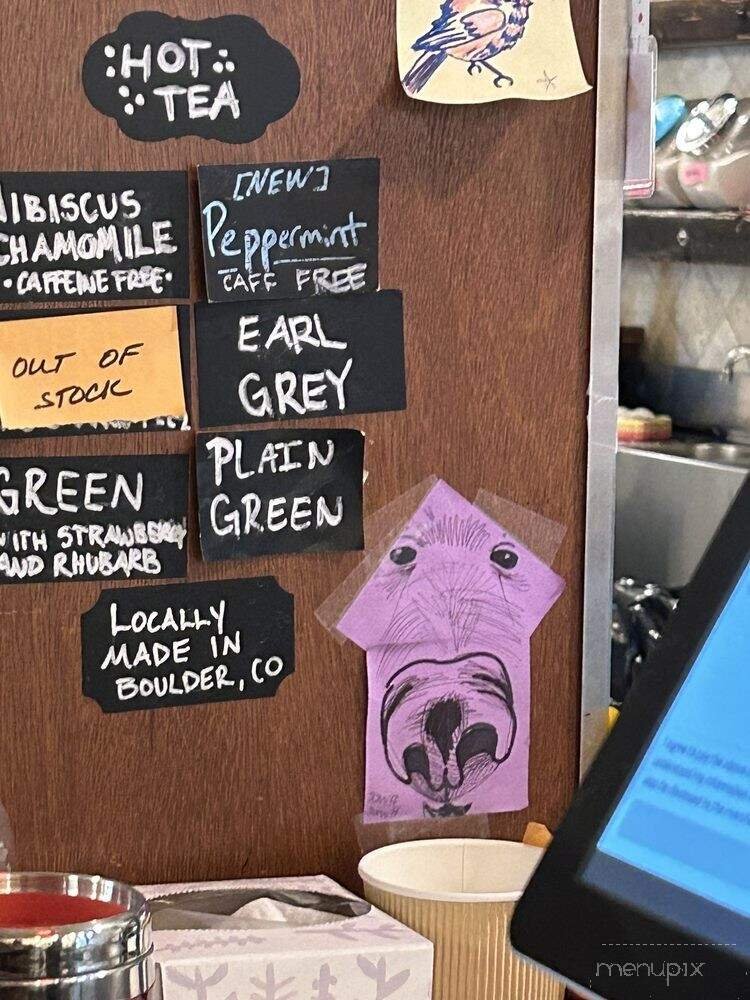 HOT
TEA
HIBISCUS
CHAMOMILE
• CAFFEINE FREE •
[NEW]
Peppermint
CAFF FREE
OUT OF
STOCK
EARL
GREY
GREEN
WITH STRAWBERRY
AND RHUBARB
PLAIN
GREEN
LOCALLY
MADE IN
BOULDER, CO
menupix